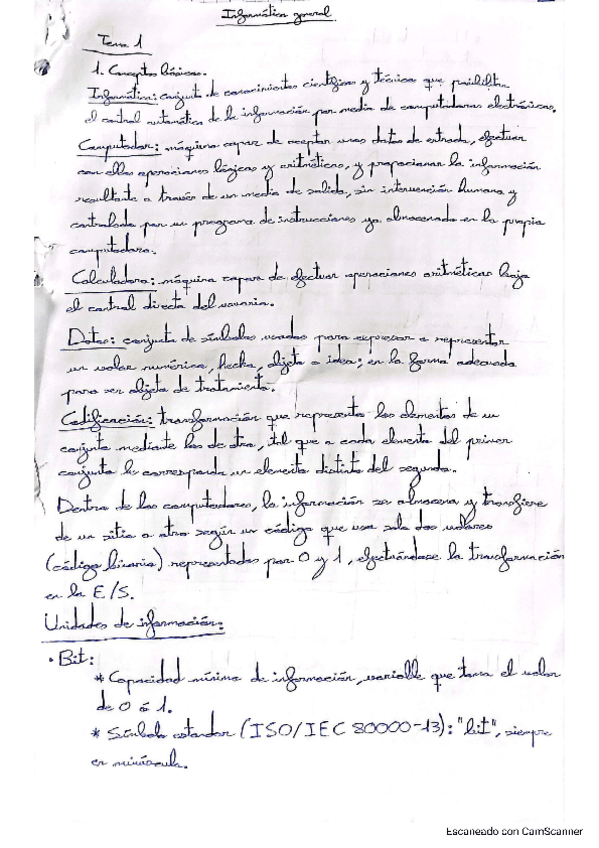 Informática general.
Tema 1
1. Conceptos básicos.
Informática: conjunto de conocimientos científicos y técnicos que posibilitan
el control automático de la información por medio de computadoras electrónicas.
Computador: máquina capaz de aceptar unos datos de entrada, efectuar
con ellos operaciones lógicas y aritméticas, y proporcionar la información
resultante a través de un medio de salida, sin intervención humana y
controlada por un programa de instrucciones ya almacenado en la propia
computadora.
Calculadora: máquina capaz de efectuar operaciones aritméticas bajo
el control directo del usuario.
Datos: conjunto de símbolos usados para expresar o representar
un valor numérico, hecho, objeto o idea; en la forma adecuada
para ser objeto de tratamiento.
Codificación: transformación que representa los elementos de un
conjunto mediante los de otro, tal que a cada elemento del primer
conjunto le corresponda un elemento distinto del segundo.
Dentro de los computadores, la información se almacena y transfiere
de un sitio a otro según un código que usa solo dos valores
(código binario) representados por 0 y 1, efectuándose la transformación
en la E/S.
Unidades de información:
· Bit:
* Capacidad mínima de información, variable que toma el valor
de 0 ó 1.
* Símbolo estandar (ISO/IEC 80000-13): "bit", siempre
en minúscula.
Escaneado con CamScanner